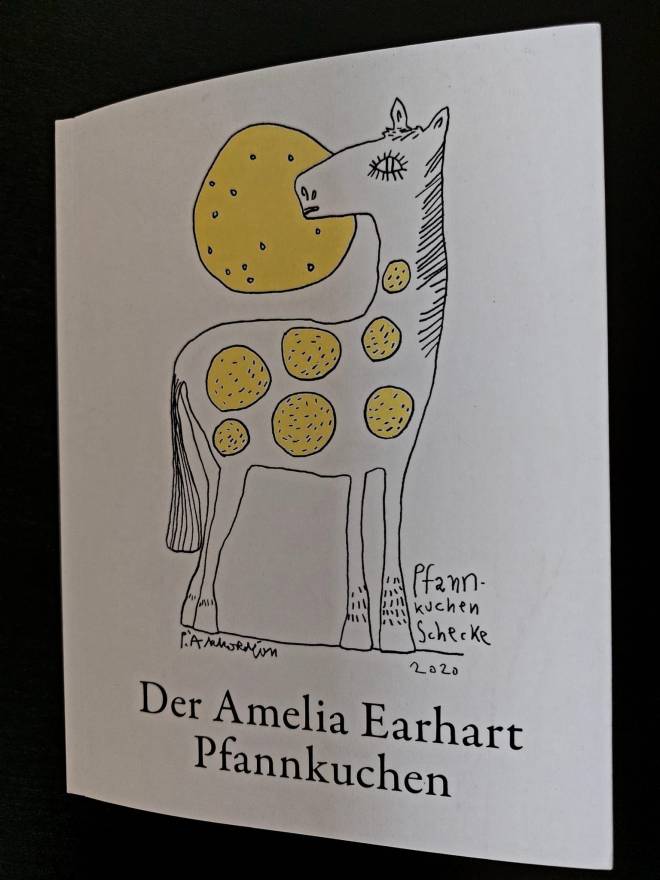 Pfann-
kuchen
Schecke
2020
Der Amelia Earhart
Pfannkuchen